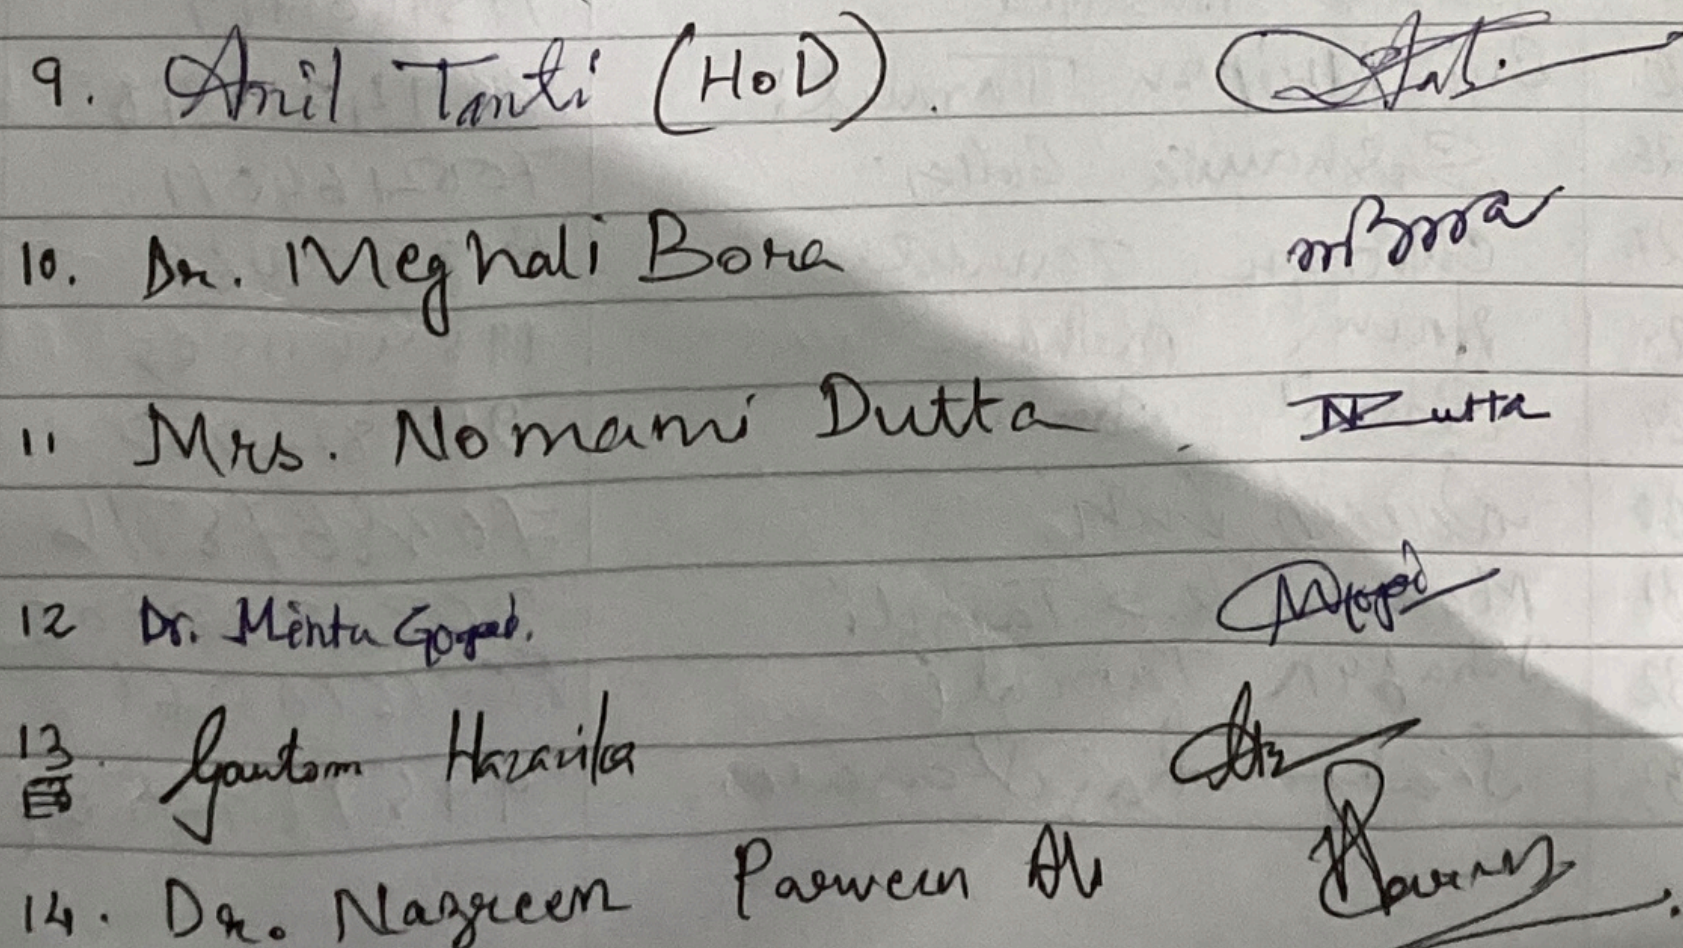 9. Anil Tanti (HoD).
10. Dr. Meghali Bora mBora
11 Mrs. Nomami Dutta NDutta
12 Dr. Mintu Gogoi.
13. Gautom Hazarika
14. Dr. Nazreen Parween Ali